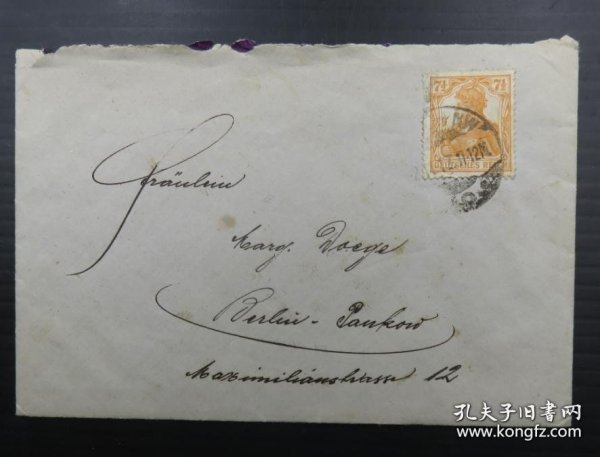 7½ 7½
DEUTSCHES REICH
Fräulein
Marg. Doege
Berlin - Pankow
Maximilianstrasse 12
孔夫子旧书网
www.kongfz.com